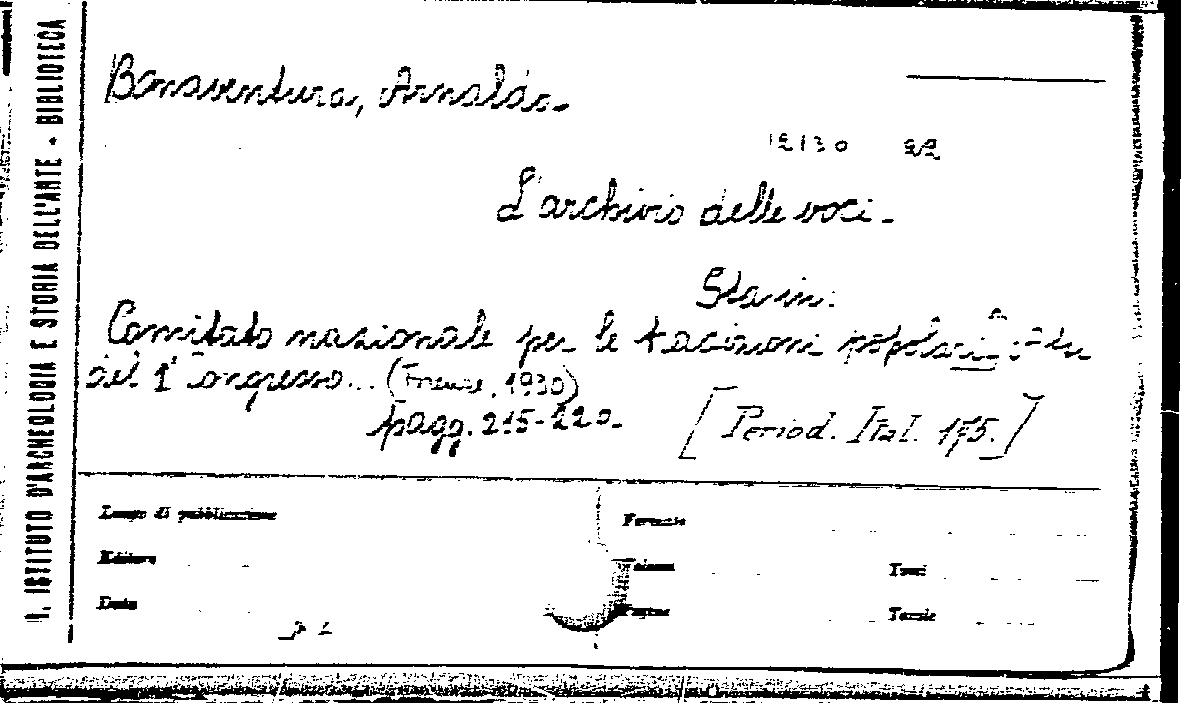 R. ISTITUTO D'ARCHEOLOGIA E STORIA DELL'ARTE - BIBLIOTECA
Bonaventura, Arnaldo.
12130 22
L'archivio delle voci.
Sta in:
Comitato nazionale per le tradizioni popolari. Atti
del 1° Congresso... (Firenze, 1930)
pagg. 215-220.
[Period. Ital. 175.]
Luogo di pubblicazione
Formato
Editore
Volume
Tomi
Data
Pagine
Tavole